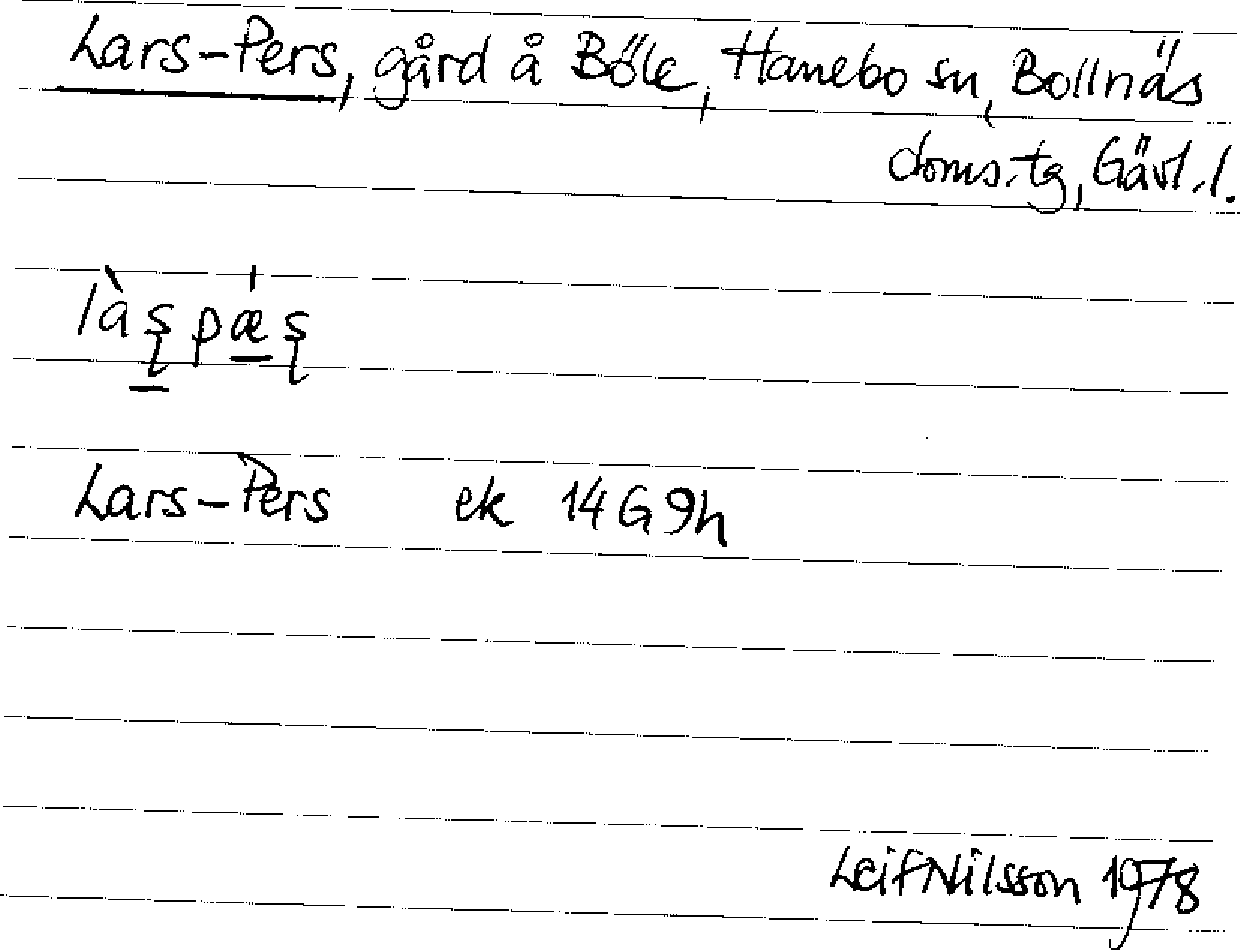 Lars-Pers, gård å Böle, Hanebo sn, Bollnäs
doms.tg, Gävl.l.
làʂpæ̱ʂ
Lars-Pers ek 14G9h
Leif Nilsson 1978